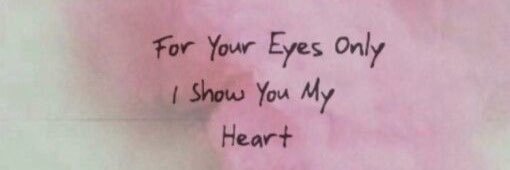 For Your Eyes Only
I Show You My
Heart